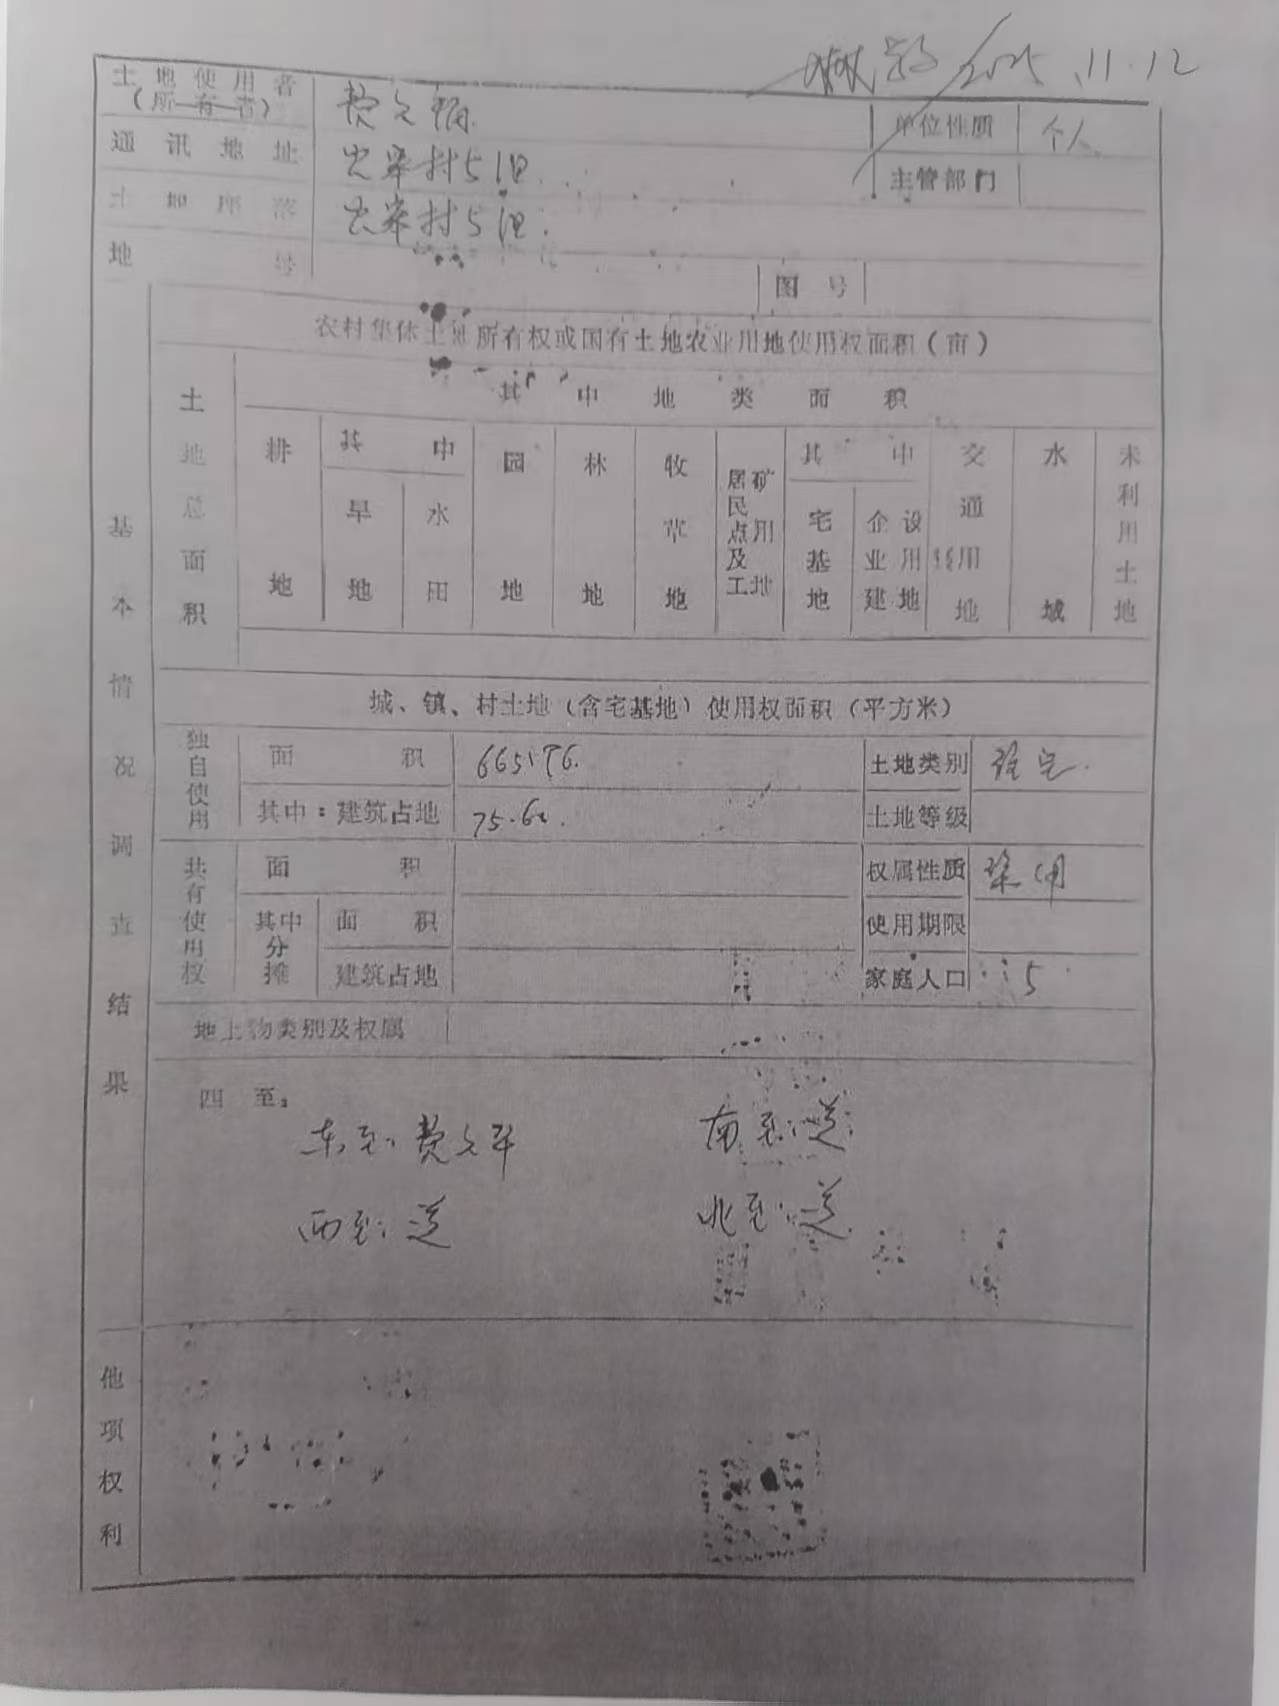 2025.11.12
土地使用者
(所有者)
费文
单位性质 个人
通讯地址
村5组
主管部门
土地座落
村5组
地号
图号
基本情况调查结果
农村集体土地所有权或国有土地农业用地使用权面积(亩)
土地总面积
其中地类面积
耕地
其中
旱地
水田
园地
林地
牧草地
居民点及工矿用地
其中
宅基地
企业建设用地
交通用地
水域
未利用土地
城、镇、村土地(含宅基地)使用权面积(平方米)
独自使用
面积
土地类别 宅
其中:建筑占地 75.62
土地等级
共有使用权
面积
权属性质 集用
其中分摊
面积
使用期限
建筑占地
家庭人口 5
地上物类别及权属
四至:
东至:费文平
南至:道
西至:道
北至:道
他项权利